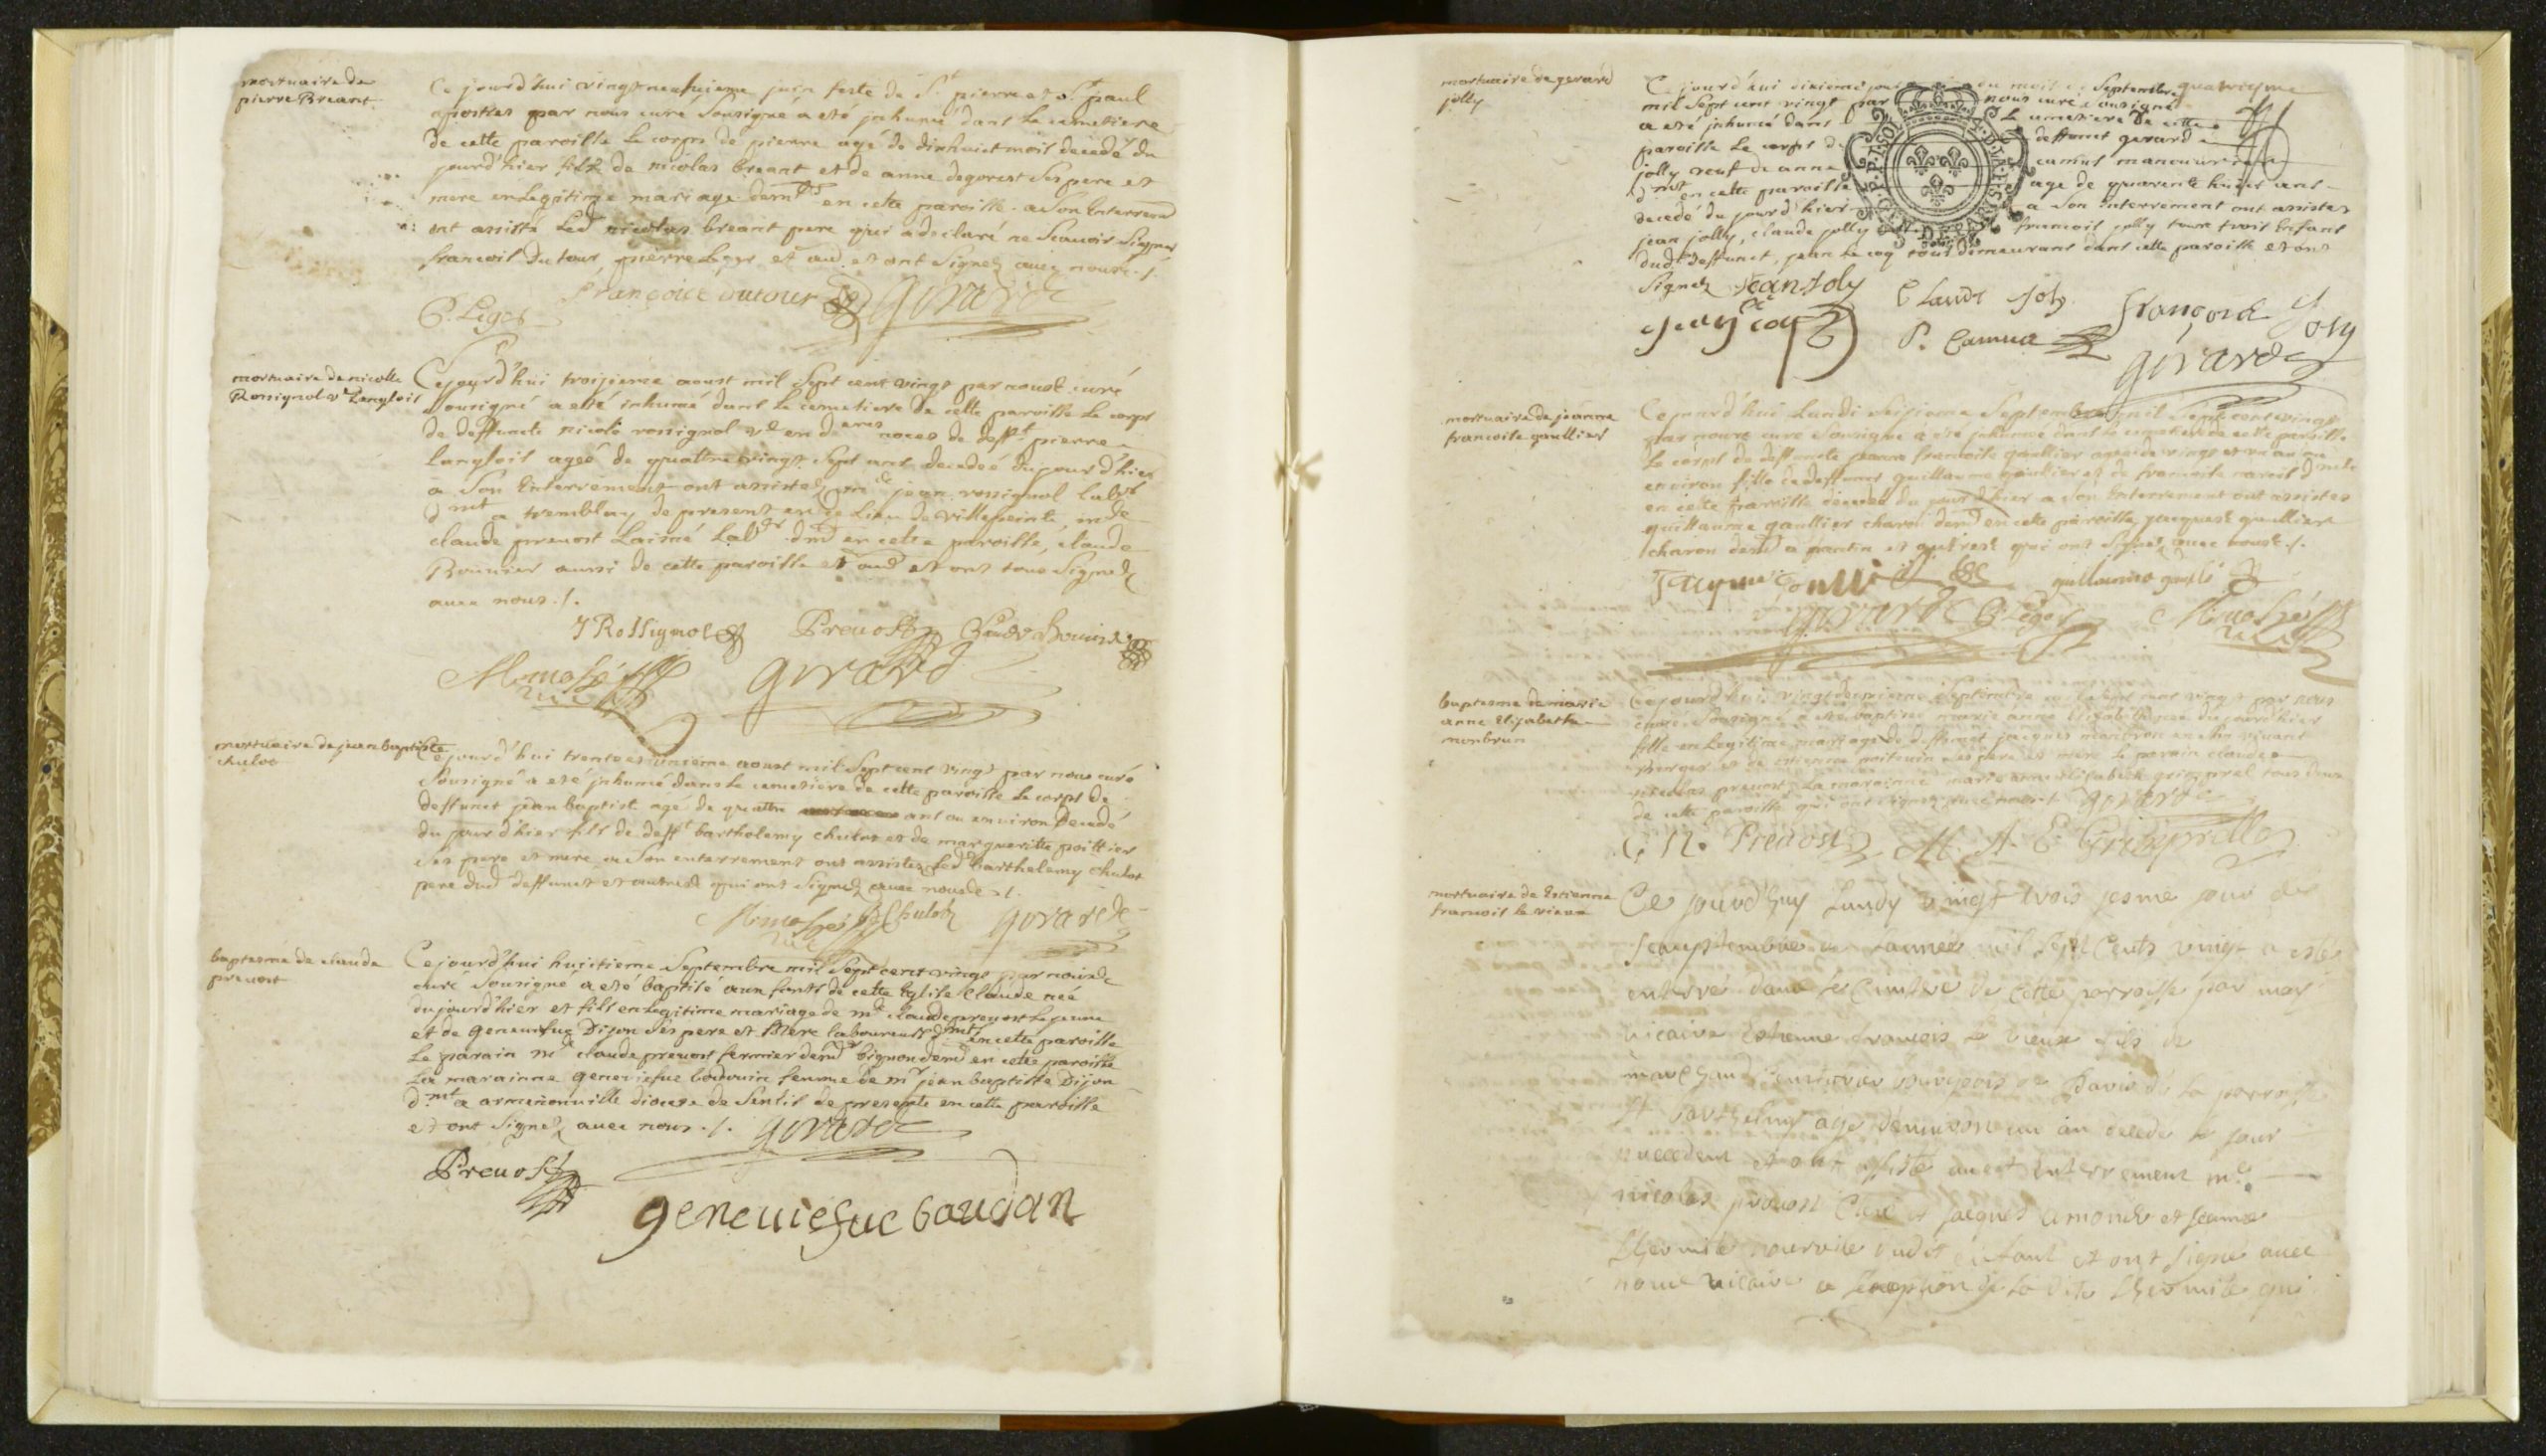 mortuaire de
pierre Breant
Ce jourd'hui vingt neufuieme juin feste de St pierre et St paul
apostres par nous curé sousigné a eté inhumé dans le cemetiere
de cette paroisse le corps de pierre agé de dixhuict mois decedé du
jourd'hier fils de nicolas breant et de anne degorest ses pere et
mere en legitime mariage demts en cette paroisse. a son enterremt
ont assisté led nicolas breant pere qui a declaré ne scauoir signer
francois dutour, pierre leger et aud et ont signez auec nous ./.
françoit dutour girard
P. Leger
mortuaire de nicolle
Rossignol ve Langlois
Cejourd'hui troizieme aoust mil sept cent vingt par nous curé
sousigné a esté inhumé dans le cemetiere de cette paroisse le corps
de deffuncte nicole rossignol ve en deres noces de defft pierre
langlois ageé de quattre vingt sept ans decedeé du jour d'hier
a son enterrement ont assistez jean rossignol labr
dmt a tremblay de present en ce lieu de villepeinte, mde
claude preuost laisné labr dmt en cette paroisse, claude
Bounier aussi de cette paroisse et aud et ont tous signez
auec nous ./.
J Rossignol Preuost
girard
mortuaire de jean baptiste
chulot
Cejourd'hui trente et unieme aoust mil sept cent vingt par nous curé
sousigné a esté inhumé dans le cemetiere de cette paroisse le corps de
deffunct jean baptiste agé de quattre ans ou environ decedé
du jour d'hier fils de defft bartholemy chulot et de marguerite poittier
ses pere et mere a son enterrement ont assistez led barthelemy chulot
pere dud deffunct et autres qui ont signez auec nous ./.
B Chulot girard
baptesme de claude
preuost
Cejourd'hui huictieme septembre mil sept cent vingt par nous
curé sousigné a eté baptisé aux fonts de cette Eglise claude neé
du jourd'hier et fils en legitime mariage de md claude preuost le jeune
et de geneuiefue Dijon ses pere et mere laboureurs dmts en cette paroisse
le parain md claude preuost fermier de mr bignon demt en cette paroisse
la marainne geneviefue boduoin femme de mr jean baptiste Dijon
dmt a armenonuille diocese de senlis de presente en cette paroisse
et ont signez auec nous ./. girard
Preuost
geneuiefue baudoin
mortuaire de gerard
jolly
Cejourd'hui dixieme jour du mois de septembre
mil sept cent vingt par nous curé sousigné
a eté inhumé dans le cemetiere de cette
paroisse le corps de deffunct gerard
jolly veuf de anne camus manouurier
dmt en cette paroisse age de quarente huict ans
decedé du jourd'hier a son interrement ont assistez
jean jolly, claude jolly francois jolly tous trois enfans
dud deffunct, jean le coq tous demeurans dans cette paroisse et ont
signez jean joly Claude joly françois joly
P. Camus
girard
mortuaire de jeanne
francoise gaullier
Cejourd'hui lundi seizieme septembre mil sept cent vingt
par nous curé sousigné a eté inhumé dans le cemetiere de cette paroisse
le corps de deffuncte jeanne francoise gaullier ageé de vingt et un an ou
environ fille de deffunct guillaume gaullier et de francoise
en cette paroisse decedeé du jour d'hier a son enterrement ont assistez
guillaume gaullier charon demt en cette paroisse, jacques gaullier
charon demt a pantin et autres qui ont signez auec nous ./.
girard P. Leger
baptesme de marie
anne elizabethe
monbrun
Cejourd'hui vingt deuxieme septembre mil sept cent vingt par nous
curé sousigné a eté baptisée marie anne elizabethe neé du jourd'hier
fille en legitime mariage de deffunct jacques monbrun en son viuant
Berger et de ses pere et mere le parain claude
nicolas preuost la marainne marie anne elisabeth tous deux
de cette paroisse qui ont signez auec nous ./. girard
C. N. Preuost M. A. E.
mortuaire de Estienne
francois le vieux
Ce jourd'huy Lundy vingt trois jesme jour de
Sceptembre de lannée mil sept Cents vingt a esté
enterré dans le Cimtiere de cette parroisse par moy
vicaire Estienne francois le vieux fils de
marchand bourgeois de Paris de la parroisse
St Barthelmy agé denuiron un an decedé le jour
precedent et ont assisté au enterrement mre
nicolas preuost Clerc et jacques amond et jeanne
Lhermite nourrice dudit enfant et ont signé auec
nous vicaire a lexception de la dite Lhermite qui